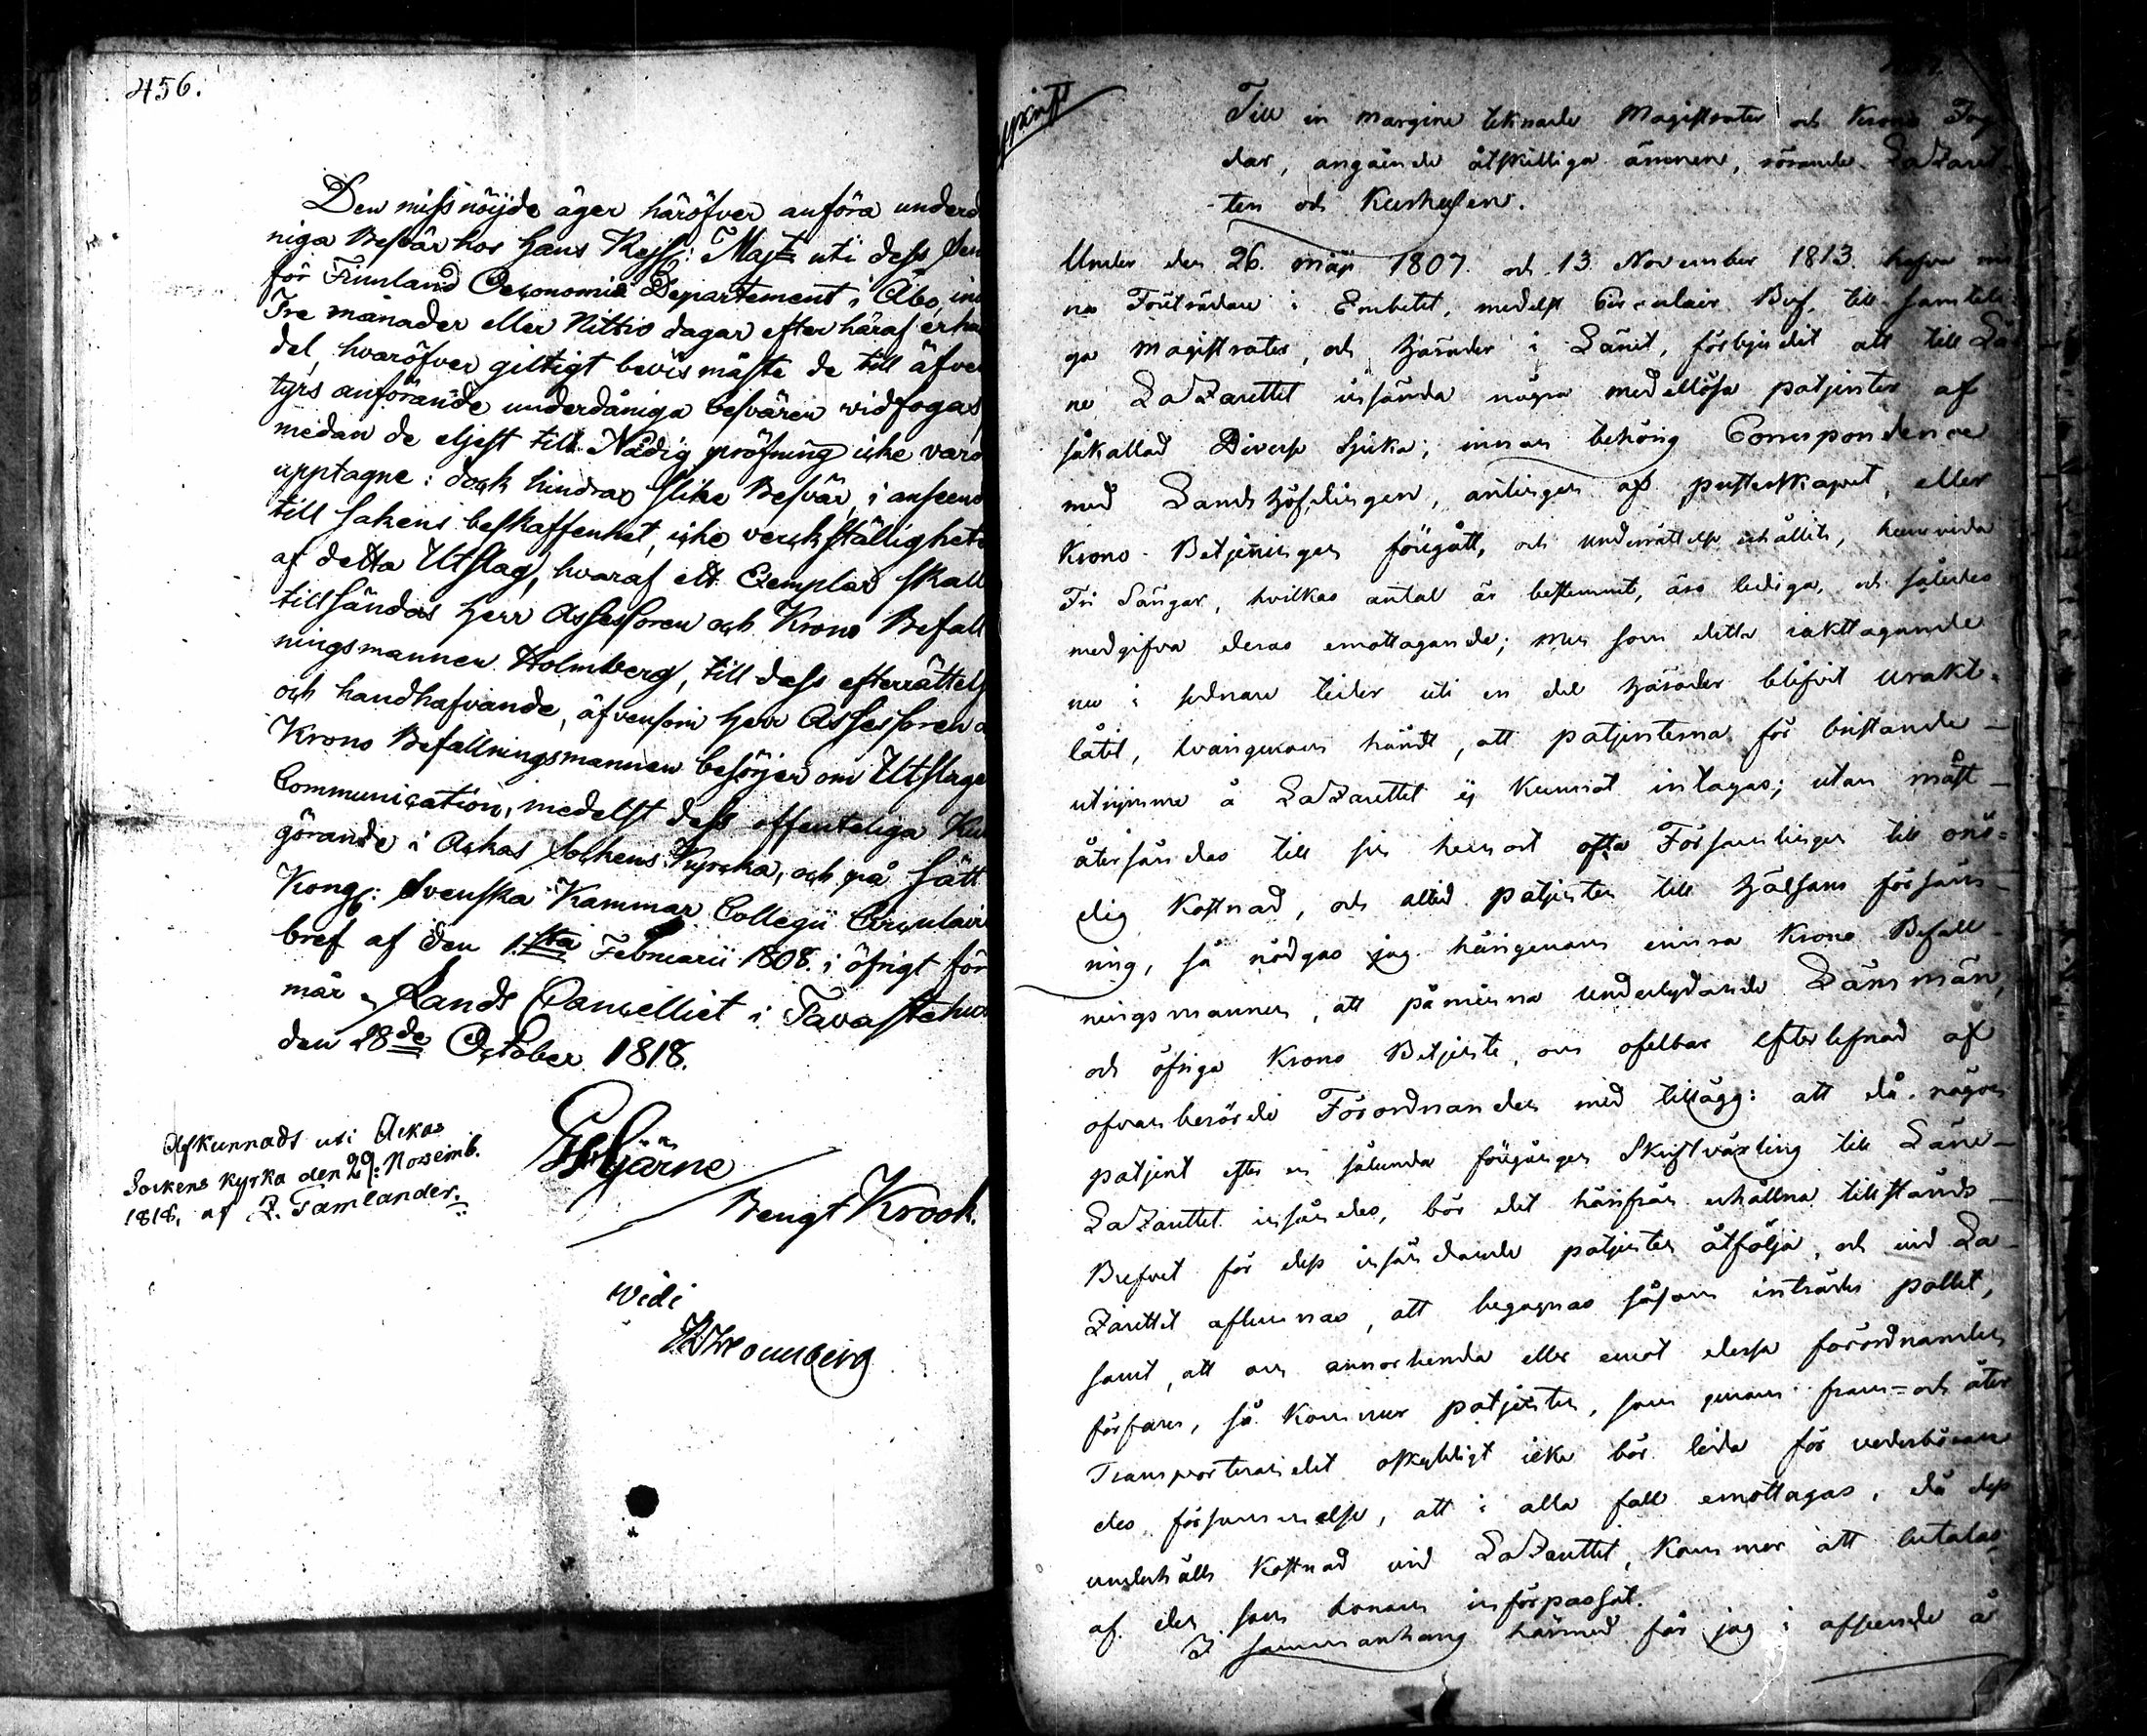 456.
Den missnöijde äger häröfver anföra underd
niga Besvär hos Hans Kejs: Majt uti dess Sen
för Finnland Oeconomiæ Departement i Åbo, in
Tre månader eller Nittio dagar efter häraf erha
del, hvaröfver giltigt bevis måste de till äfve
tyrs anförande underdåniga besvären vidfogas,
medan de eljest till Nådig pröfning icke vara
upptagne: dock hindras slike Besvär, i anseend
till sakens beskaffenhet, icke verckställighet
af detta Utslag, hvaraf ett Exemplar skall
tillsändas Herr Assessoren och Krono Befall
ningsmannen Holmberg, till dess efterrättels
och handhafvande, äfvensom Herr Assessoren o
Krono Befallningsmannen besörjer om Utslage
Communication, medelst dess offenteliga Kun
görande i Ackas Sockens Kyrcka, och på sätt
Kongl: Svenska Kammar Collegii Circulair
bref af den 1.sta Februarii 1808. i öfrigt för
mår. Lands Cancelliet i Tavastehus
den 28de October 1818.
Afkunnads uti Ackas
Sockens kyrka den 29: Novemb.
1818, af Z. Tamlander.
Hjärne
Bengt Krook.
Vidi
Till in margine teknade Magistrater och Krono Fog
dar, angående åtskilliga ämnen, rörande LaZaret
ten och Kurhusen.
Under den 26. maji 1807. och 13 November 1813. hafva mi
na Företrädare i Embetet, medelst Circulair Bref, till samteli
ga magistrater, och Härader i Länet, förbjudit att till Lä
ne LaZarettet insända några medellösa patjenter af
såkallad Diverse Sjuka; innan behörig Correspondence
med Landshöfdingen, antingen af presterskapet, eller
Krono-Betjeningen föregått, och underrättelse erhållits, huruvida
Fri Sängar, hvilkas antal är bestemmt, äro lediga, och således
medgifva deras emottagande; men som detta iakttagande
nu i sednare tider uti en del Härader blifvit urakt-
låtit, hvarigenom händt, att patjenterna för bristande
utrymme å LaZarettet ej kunnat intagas; utan måst
återsändas till sin hemort ofta Församlingen till onö-
dig Kostnad, och alltid patjenten till Hälsans försäm-
ring, så nödgas jag härigenom erinra Krono Befall-
ningsmannen, att påminna underlydande Länsmän,
och öfriga Krono Betjente, om ofelbar efterlefnad af
ofvanberörde Förordnanden med tillägg: att då någon
patjent efter en sålunda föregången Skriftväxling till Läne-
LaZarettet insändes, bör det härifrån erhållna tillstånds-
Brefvet för dess insändande patjenten åtfölja, och vid La-
Zarettet aflemnas, att begagnas såsom inträdes pollet,
samt, att om annorlunda eller emot dessa förordnanden
förfares, så kommer patjenten, som genom fram- och åter
Transporterandet oskyldigt icke bör lida för vederböran
des försummelse, att i alla fall emottagas, då dess
underhålls Kostnad vid LaZarettet, kommer att betalas
af den som honom införpassat.
I sammanhang härmed får jag i afseende å